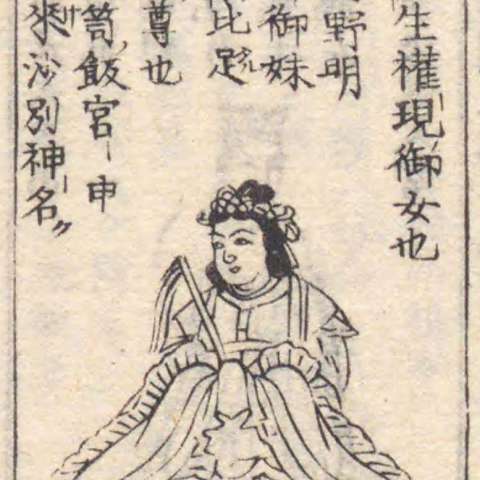 生權現御女也
野明
御妹
比足
尊也
笥飯宮申
來沙別神名